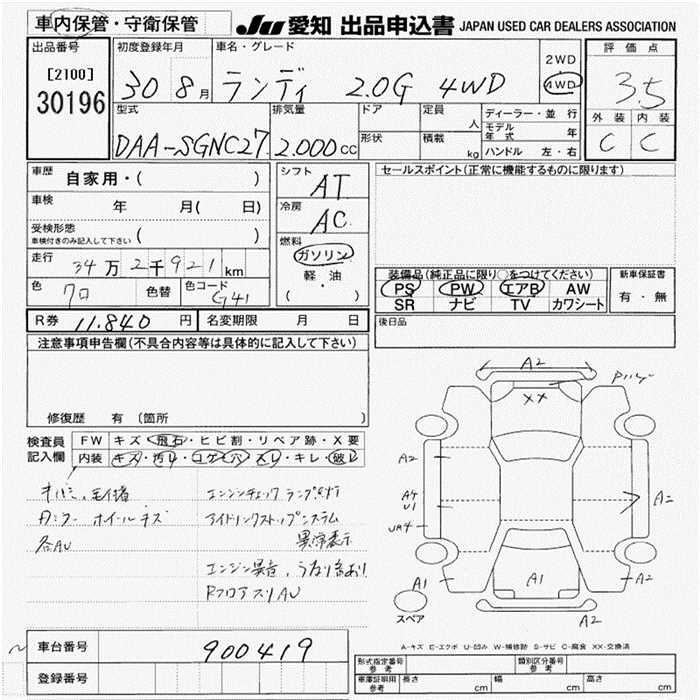 車内保管・守衛保管
JU 愛知 出品申込書 JAPAN USED CAR DEALERS ASSOCIATION
出品番号
[2100]
30196
初度登録年月
30 8月
車名・グレード
ランディ 2.0G 4WD
2WD
4WD
評価点
3.5
外装 内装
C C
型式
DAA-SGNC27
排気量
2.000cc
ドア
形状
定員
人
積載
kg
ディーラー・並行
モデル年式 年
ハンドル 左・右
車歴 自家用・( )
車検 年 月( 日)
受検形態
車検付きのみ記入して下さい ( )
走行 34万2千921km
色 クロ 色替 色コード G41
シフト
AT
冷房
AC
燃料
ガソリン
軽・油
( ・ )
セールスポイント(正常に機能するものに限ります)
装備品(純正品に限り○をつけてください)
PS PW エアB AW
SR ナビ TV カワシート
新車保証書
有・無
R券 11.840円 名変期限 月 日
後日品
注意事項申告欄(不具合内容等は具体的に記入して下さい)
修復歴 有 〔箇所 〕
検査員記入欄
FW キズ・飛石・ヒビ割・リペア跡・X要
内装 キズ・汚レ・コゲ・穴・スレ・キレ・破レ
エンジンチェックランプ点灯
Aミラー ホイールキズ
アイドリングストップシステム
各AU
異常表示
エンジン異音、うなり音あり
RフロアスリAU
A2
XX
A2
A4
U1
A2
A1
A1
A2
A2
スペア
A-キズ E-エクボ U-凹み W-補修跡 S-サビ C-腐食 XX-交換済
車台番号 900419
登録番号
形式指定番号
参考
類別区分番号
参考
車庫証明用
参考
長さ cm 幅 cm 高さ cm